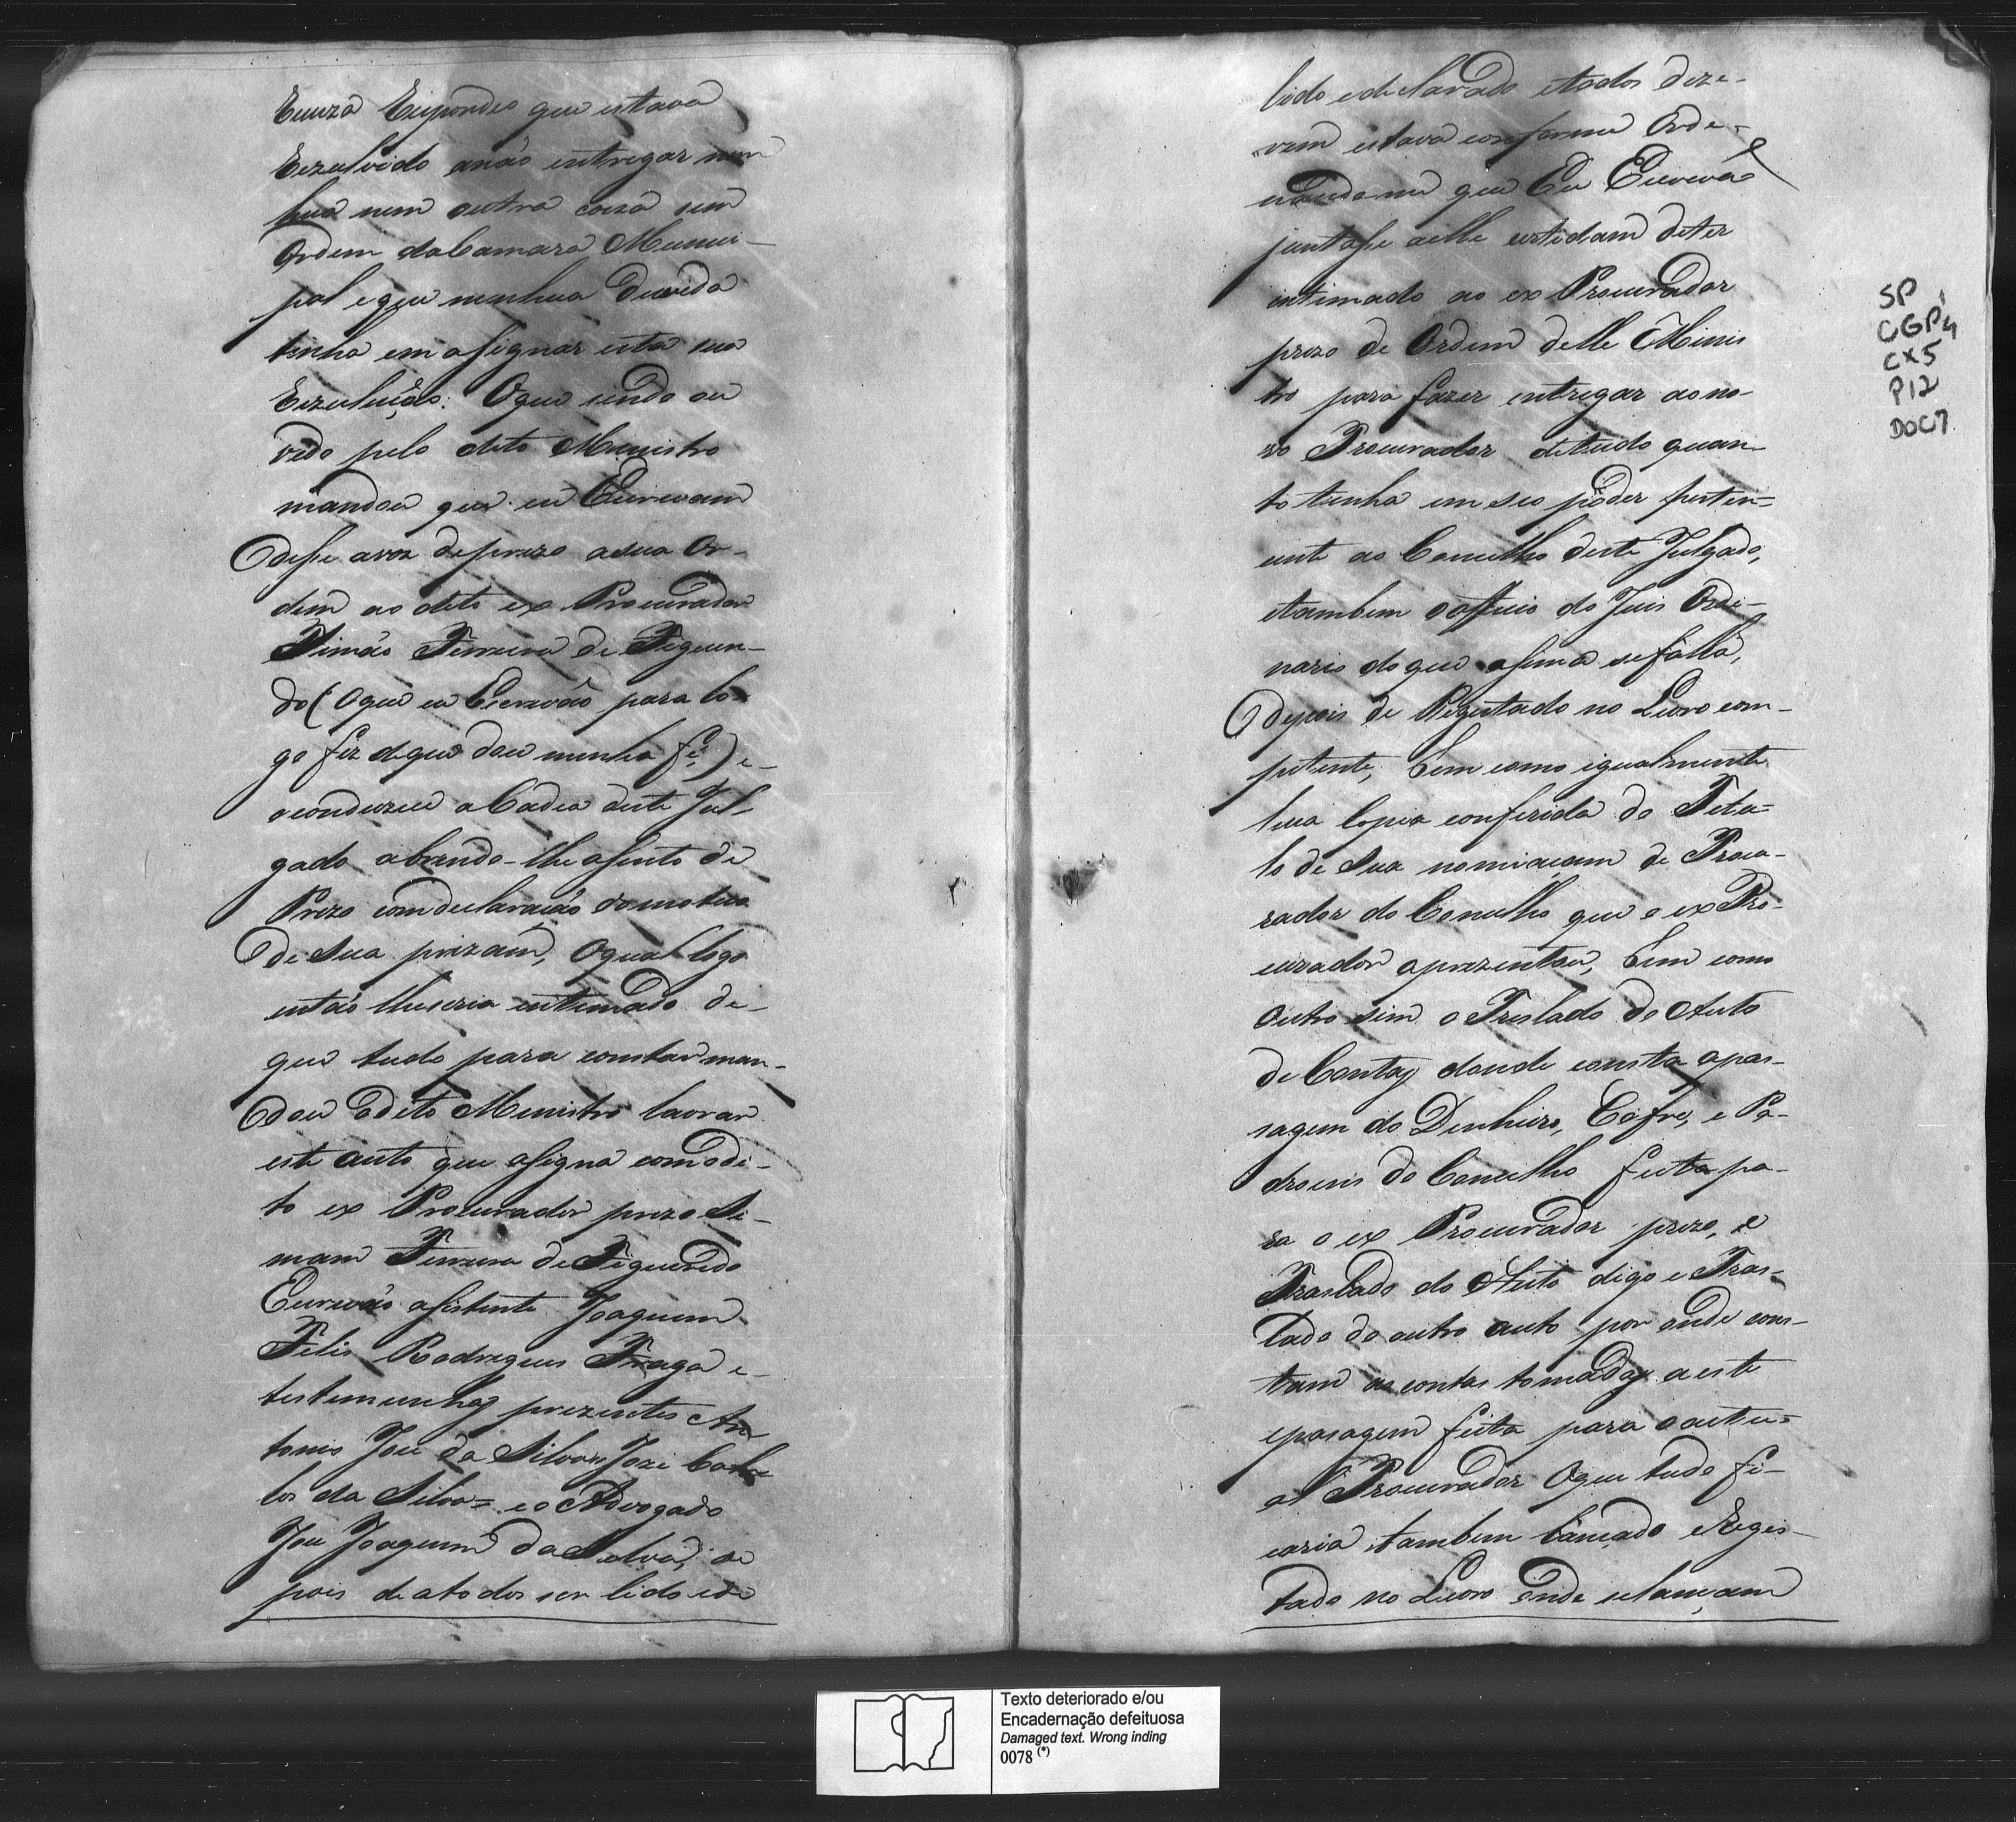 Escuza Respondeo que estava
Rezolvido anão entregar nem
hua nem outra coiza sem
Ordem daCamara Munici-
pal e que nenhua duvida
tinha em asignar esta sua
Rezulução: Oque sendo ou
vido pelo dito Menistro
mandou que eu Escrivam
desse avoz deprezo asua Or-
dem ao dito ex Procurador
Simão Ferreira de Figuere-
do (Oque eu Escrivão para lo-
go fiz deque dou minha fé) e-
oconduzise a Cadea deste Jul-
gado abrindo-lhe asento de
Prezo comdeclaração domotivo
de Sua prizam, Oqual logo
então lheseria intimado de-
que tudo para constar man-
dou o dito Menistro lavrar
este auto que asigna comodi-
to ex Procurador prezo Si-
mam Ferreira de Figueredo
Escrivão asistente Joaquim
Felis Rodrigues Fraga e-
testemunhas prezentes An
tonio Joze da Silva= Joze Car
los da Silva= e o Advogado
Joze Joaquim da Silva, de
pois de atodos ser lido ede
lido edeclarado etodos dize-
rem estava conforme Orde-
nandome que Eu Escrivão
juntase aelle certidam deter
intimado ao ex Procurador
prezo de Ordem delle Menis
tro para fazer entregar aono-
vo Procurador detudo quan-
to tinha em seo poder perten-
cente ao Concelho deste Julgado,
etambem oofficio do Juis Ordi-
nario doque asima sefalla,
depois de Registado no Livro com-
petente, bem como igualmente
hua Copia conferida do Titu-
lo de Sua nomiaçam de Procu-
rador do Concelho que o ex Pro-
curador aprezentou, bem como
Outro sim o Treslado do Auto
de Contas donde consta apas-
sagem do Dinheiro, Cofre, e Pa-
droens do Concelho feita pa-
ra o ex Procurador prezo, e
Traslado do Auto digo e Tras-
lado do outro auto por onde cons-
tam as contas tomadas a este
epasagem feita para oactu-
al Procurador Oque tudo fi-
caria tambem lançado eRegis-
tado no Livro onde selançam
SP
CGP4
CX5
P12
DOC7
Texto deteriorado e/ou
Encadernação defeituosa
Damaged text. Wrong inding
0078 (*)